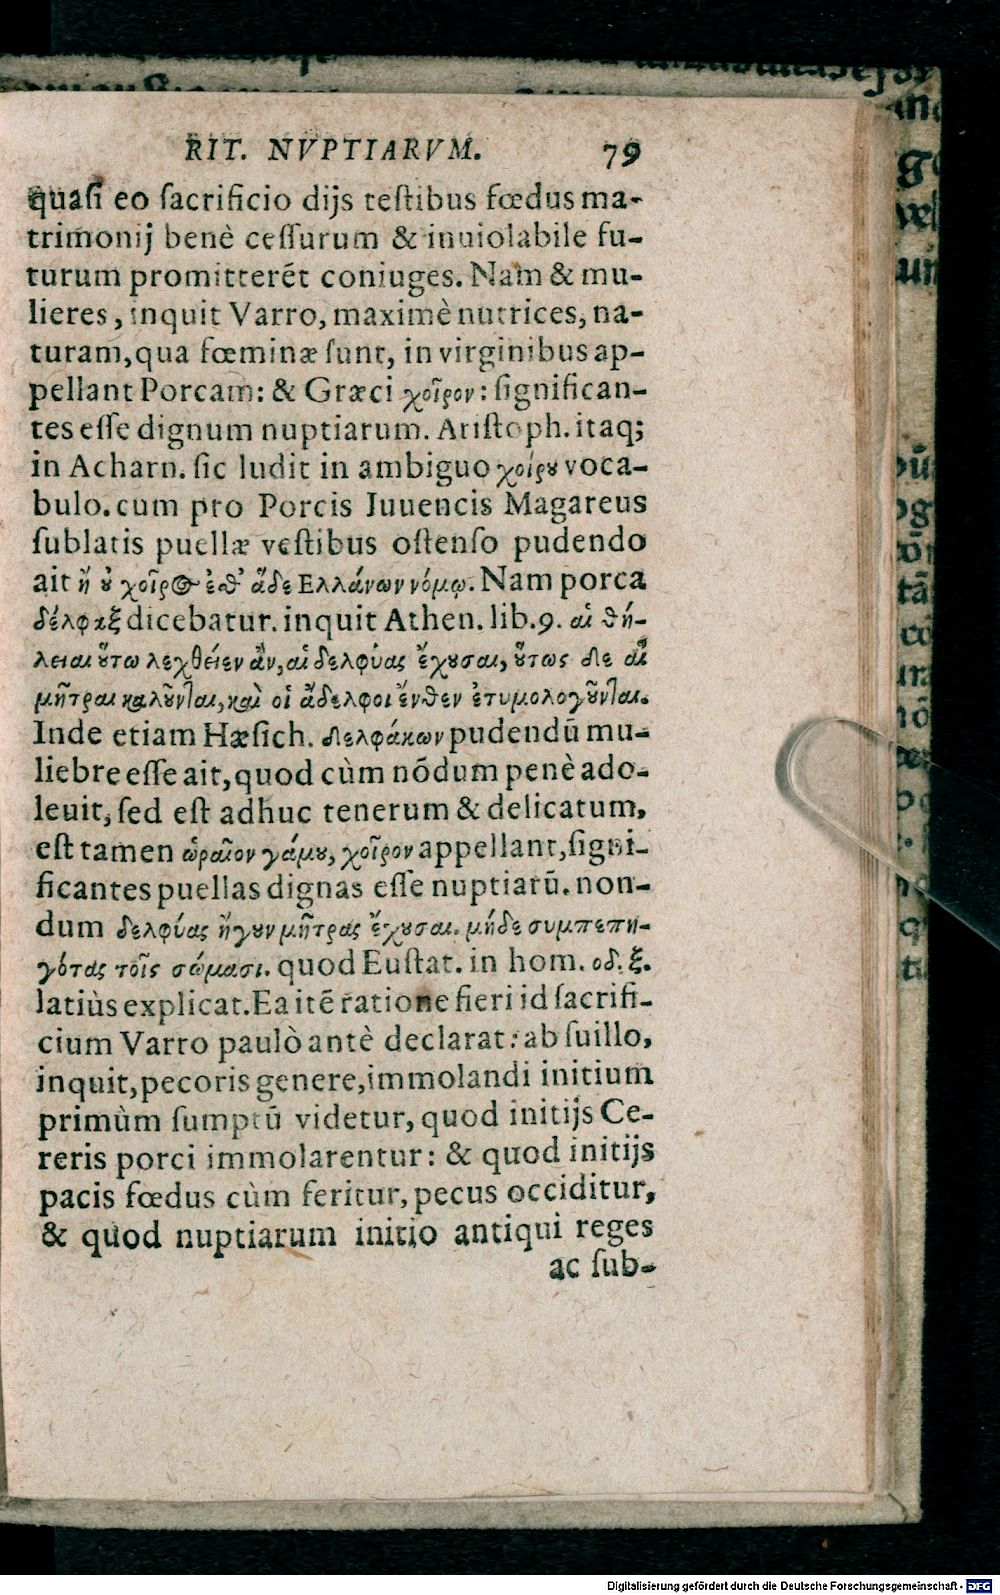 RIT. NVPTIARVM. 79
quasi eo sacrificio dijs testibus fœdus ma-
trimonij benè cessurum & inuiolabile fu-
turum promitterēt coniuges. Nam & mu-
lieres, inquit Varro, maximè nutrices, na-
turam, qua fœminæ sunt, in virginibus ap-
pellant Porcam: & Græci χοῖρον: significan-
tes esse dignum nuptiarum. Aristoph. itaq;
in Acharn. sic ludit in ambiguo χοίρου voca-
bulo. cum pro Porcis Iuuencis Magareus
sublatis puellæ vestibus ostenso pudendo
ait ἤ οὐ χοῖρος ἐσθ' ἅδε Ελλάνων νόμῳ. Nam porca
δέλφαξ dicebatur. inquit Athen. lib. 9. αἱ θή-
λειαι οὕτω λεχθεῖεν ἂν, αἱ δελφύας ἔχουσαι, οὕτως δε αἱ
μῆτραι καλοῦνται, καὶ οἱ ἄδελφοι ἔνθεν ἐτυμολογοῦνται.
Inde etiam Hæsich. δελφάκων pudendū mu-
liebre esse ait, quod cùm nōdum penè ado-
leuit, sed est adhuc tenerum & delicatum,
est tamen ὡραῖον γάμου, χοῖρον appellant, signi-
ficantes puellas dignas esse nuptiarū. non-
dum δελφύας ἤγουν μῆτρας ἔχουσαι. μήδε συμπεπη-
γότας τοῖς σώμασι. quod Eustat. in hom. οδ. ξ.
latiùs explicat. Ea itē ratione fieri id sacrifi-
cium Varro paulò antè declarat: ab suillo,
inquit, pecoris genere, immolandi initium
primùm sumptū videtur, quod initijs Ce-
reris porci immolarentur: & quod initijs
pacis fœdus cùm feritur, pecus occiditur,
& quod nuptiarum initio antiqui reges
ac sub-
Digitalisierung gefördert durch die Deutsche Forschungsgemeinschaft - DFG